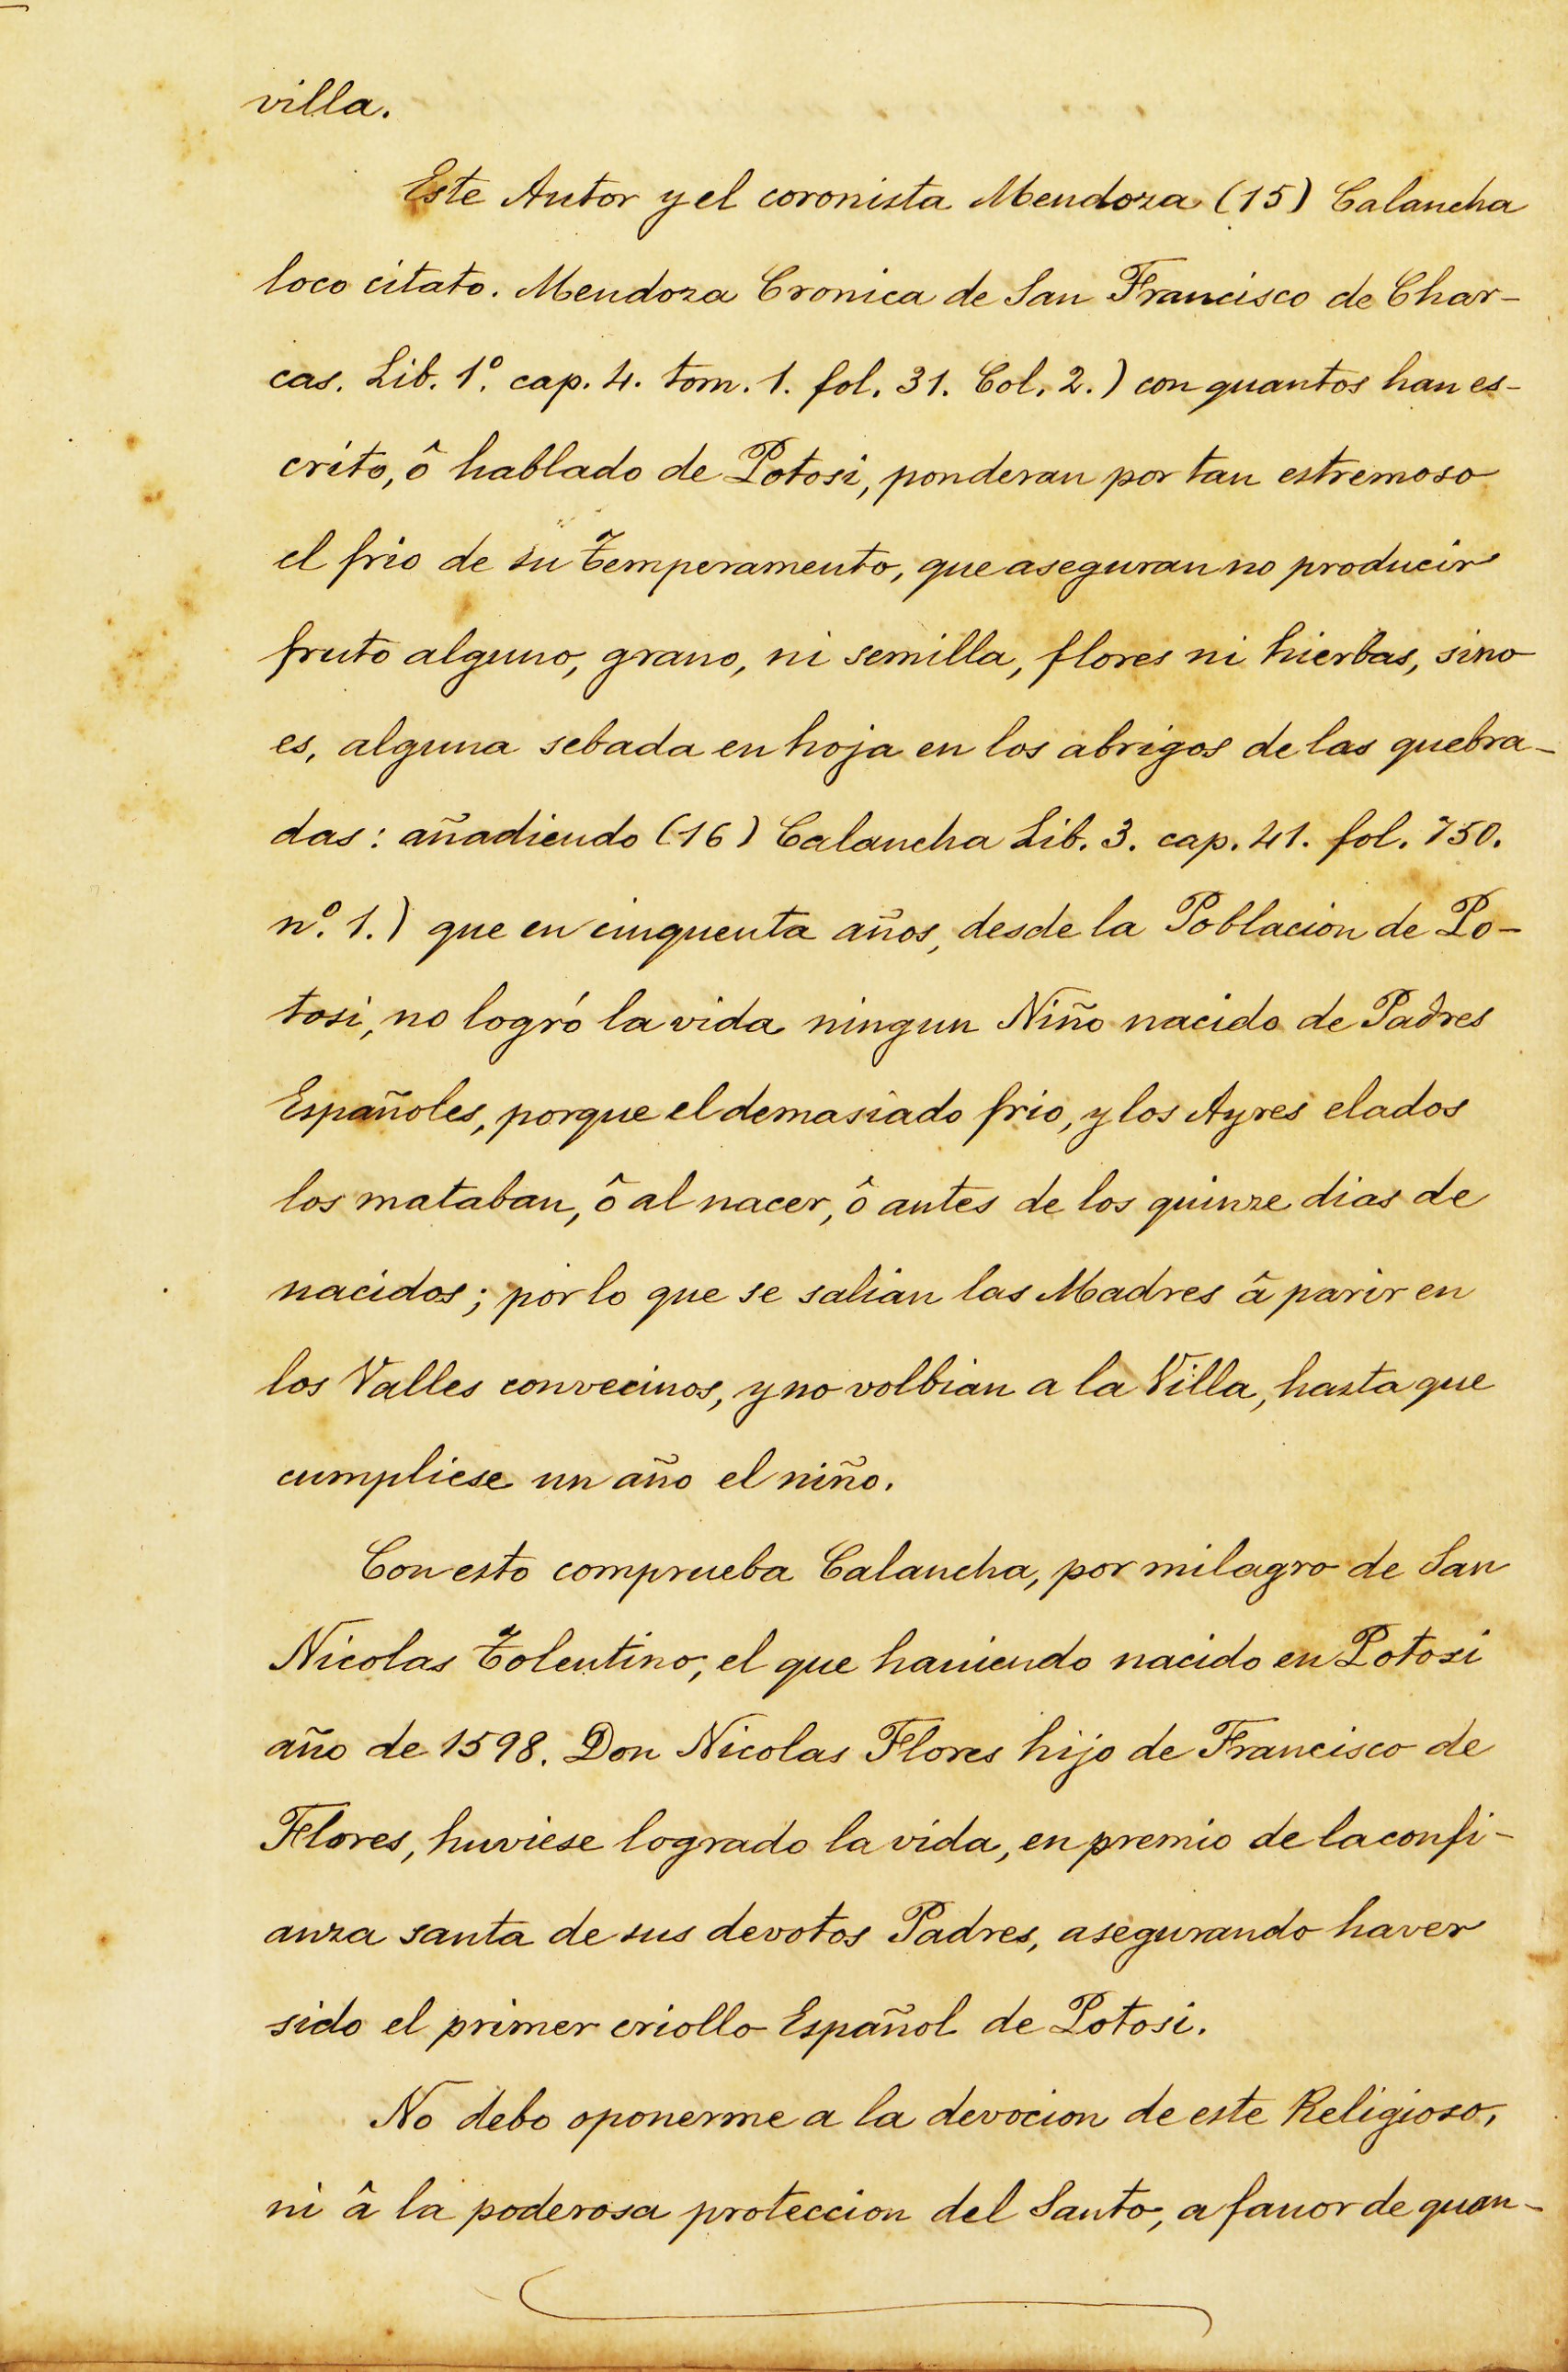 villa.
Este Autor y el coronista Mendoza (15) Calancha
loco citato. Mendoza Cronica de San Francisco de Char-
cas. Lib. 1º. cap. 4. tom. 1. fol. 31. Col. 2.) con quantos han es-
crito, ô hablado de Potosi, ponderan por tan estremoso
el frio de su temperamento, que aseguran no producir
fruto alguno, grano, ni semilla, flores ni hierbas, sino
es, alguna sebada en hoja en los abrigos de las quebra-
das: añadiendo (16) Calancha Lib. 3. cap. 41. fol. 750.
nº. 1.) que en cinquenta años, desde la Poblacion de Po-
tosi, no logró la vida ningun Niño nacido de Padres
Españoles, porque el demasiado frio, y los Ayres elados
los mataban, ô al nacer, ô antes de los quinze dias de
nacidos; por lo que se salian las Madres â parir en
los Valles convecinos, y no volbian a la Villa, hasta que
cumpliese un año el niño.
Con esto comprueba Calancha, por milagro de San
Nicolas Tolentino, el que haniendo nacido en Potosi
año de 1598. Don Nicolas Flores hijo de Francisco de
Flores, huviese logrado la vida, en premio de la confi-
anza santa de sus devotos Padres, asegurando haver
sido el primer criollo Español de Potosi.
No debo oponerme a la devocion de este Religioso,
ni â la poderosa proteccion del Santo, a fauor de quan-